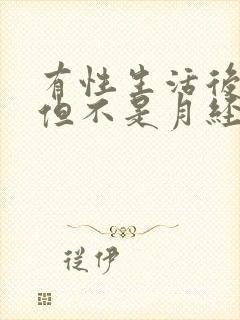 有性生活後
但不是月経
從伊